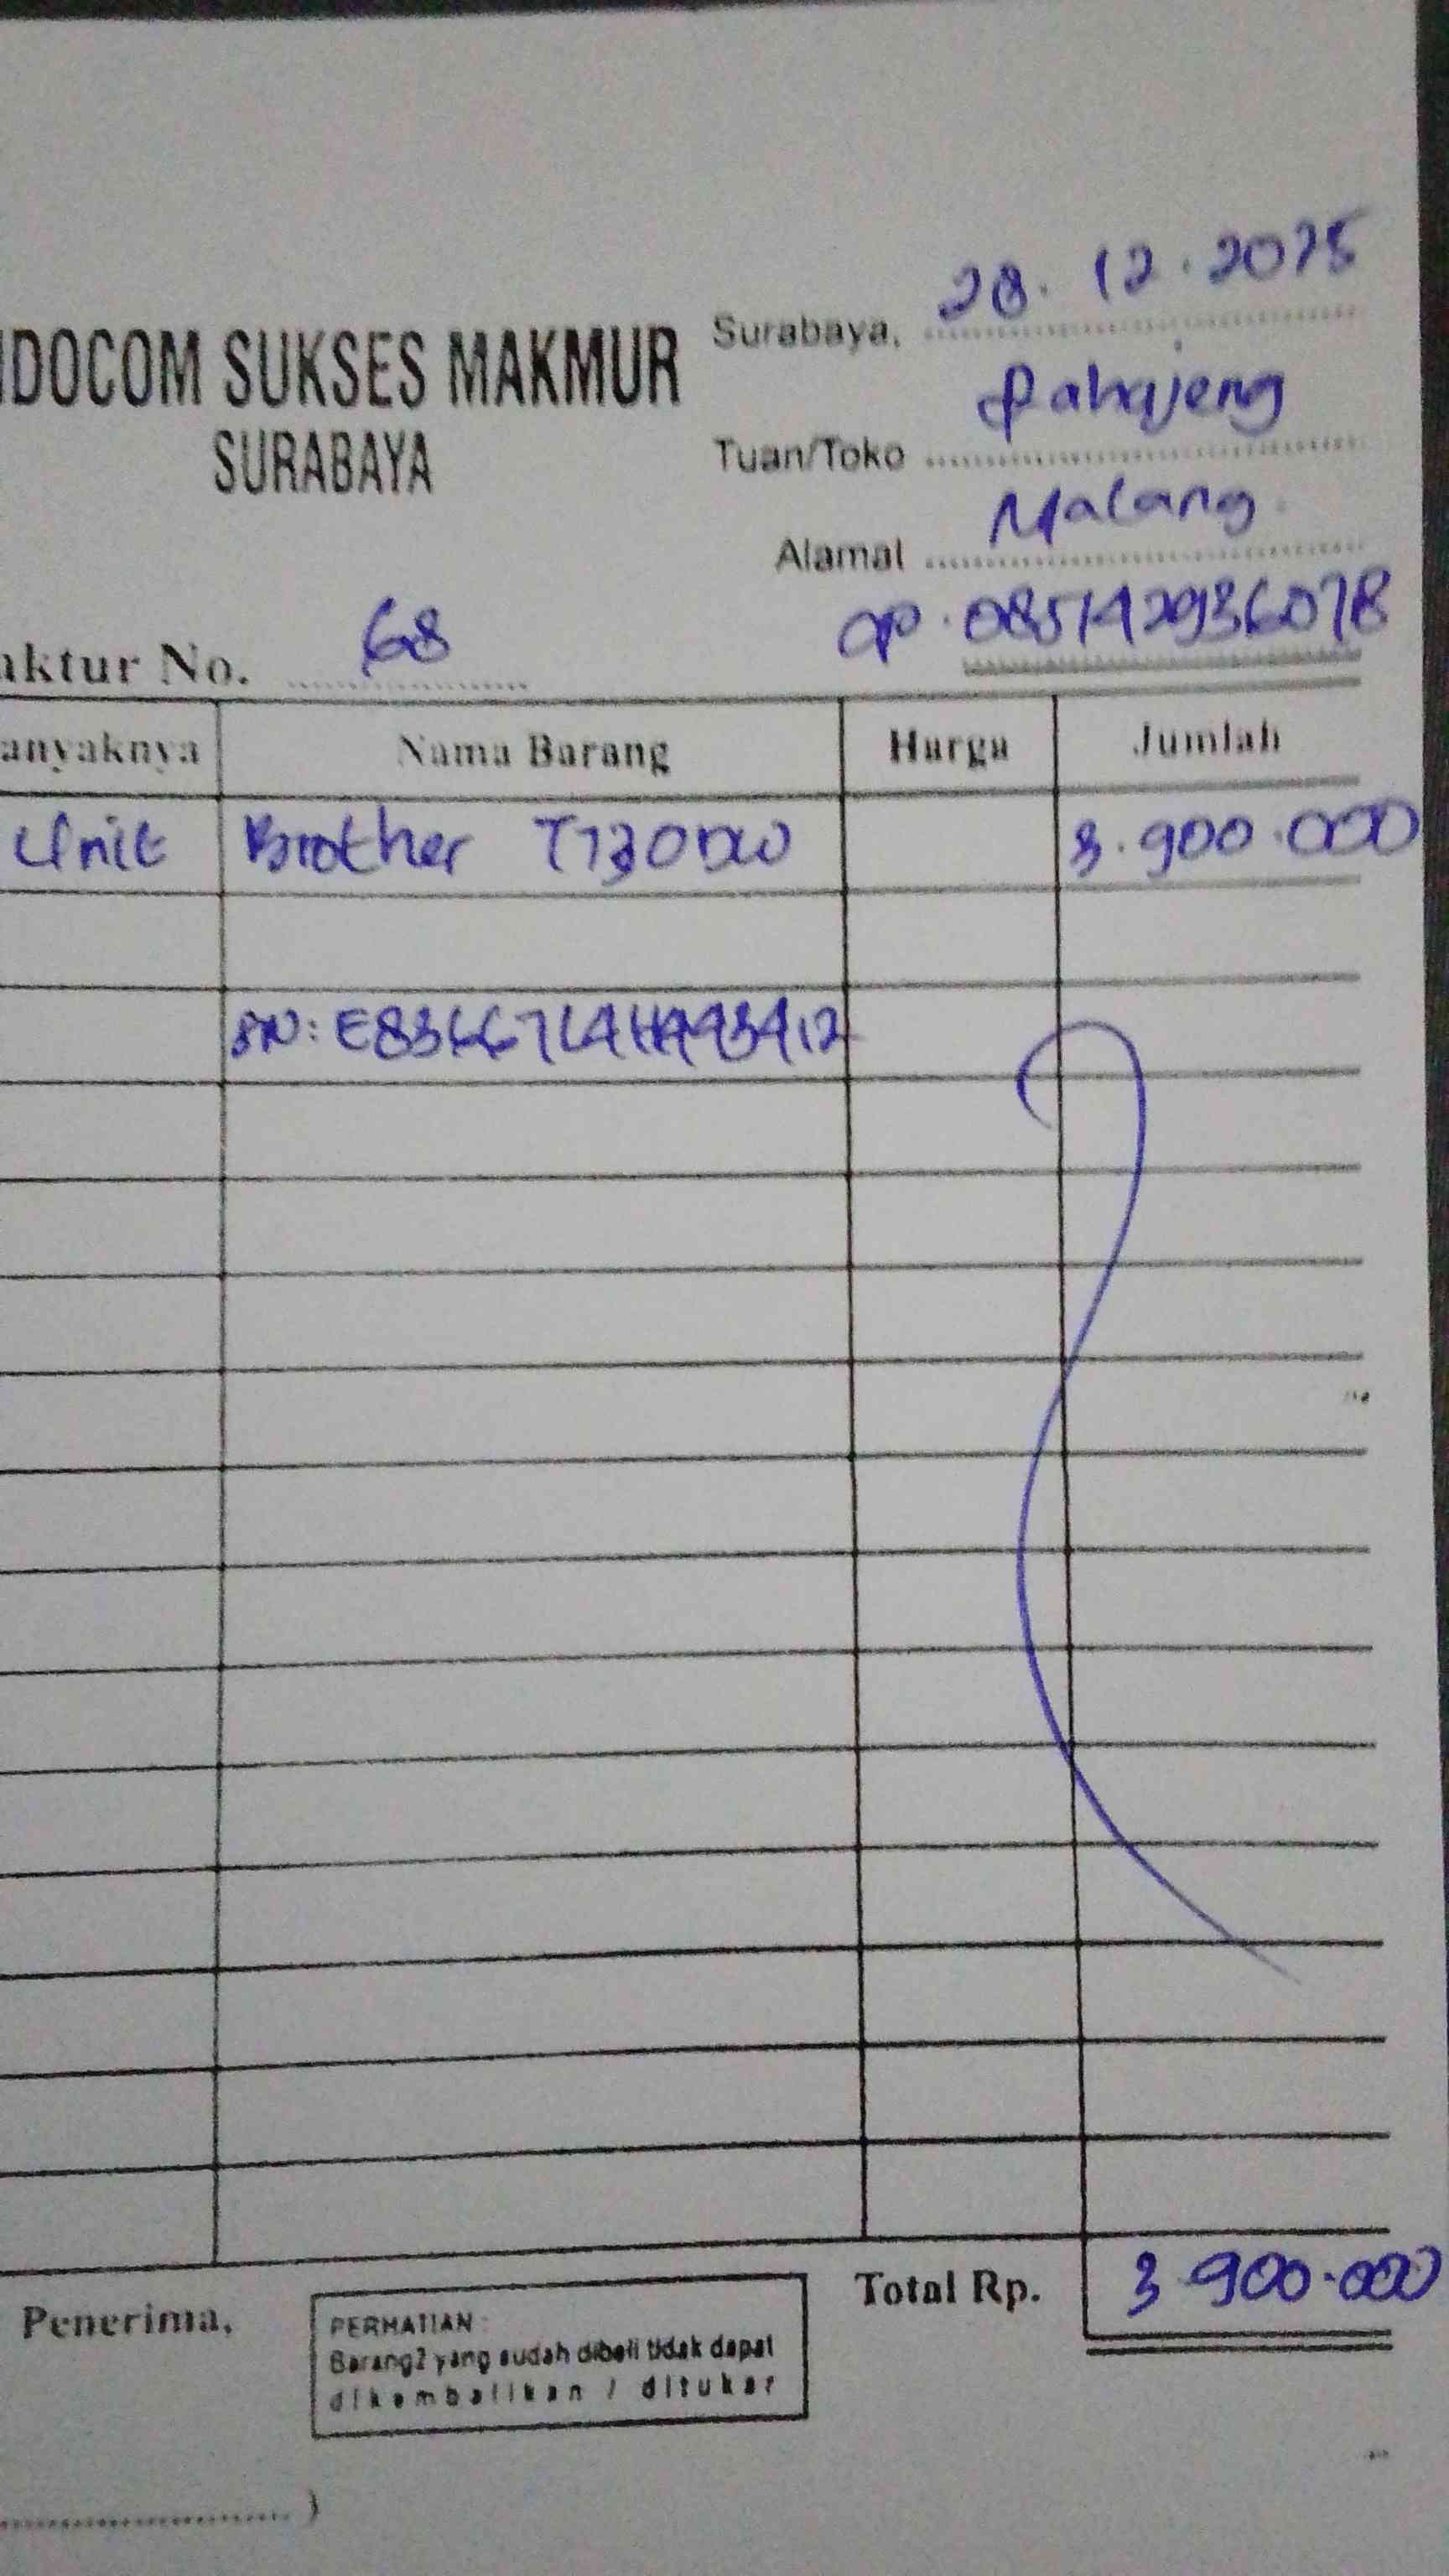 IDOCOM SUKSES MAKMUR
SURABAYA
Surabaya, 28.12.2025
Tuan/Toko Pahajeng
Alamat Malang
CP. 085142936078
aktur No. 68
anyaknya Nama Barang Harga Jumlah
Unit Brother T730DW 3.900.000
SN: E83667L4H443412
Total Rp. 3.900.000
Penerima,
PERHATIAN :
Barang2 yang sudah dibeli tidak dapat
dikembalikan / ditukar